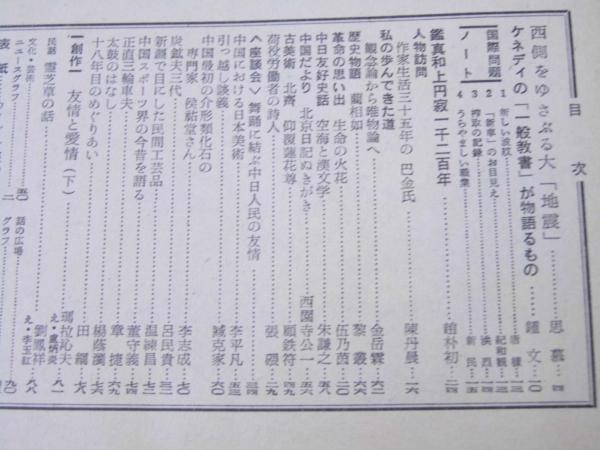 目次
西側をゆさぶる大「地震」……思慕…四
ケネディの「一般教書」が物語るもの……鍾文…一〇
国際問題ノート
1 新しい波紋……唐棣…一三
2 「新車」のお目見え……紀和親…一三
3 搾取の記録……洪西…一四
4 うらやましい職業……新民…一五
鑑真和上円寂一千二百年……趙朴初…二
人物訪問
作家生活三十五年の 巴金氏……陳丹晨…一六
私の歩んできた道
観念論から唯物論へ……金岳霖…二六
歴史物語 藺相如……黎叢…六六
革命の思い出 生命の火花……伍乃茵…二〇
中日友好史話 空海と漢文学……朱謙之…五八
中国だより 北京日記ぬきがき……西園寺公一…五六
古美術 北斎 仰覆蓮花尊……顧鉄符…四九
荷役労働者の詩人……張碬…二九
〈座談会〉 舞踊に結ぶ中日人民の友情……三四
中国における日本美術……李平凡…五三
引っ越し談義……臧克家…六〇
中国最初の介形類化石の
専門家 侯祐堂さん……李志成…七〇
炭鉱夫三代……呂民貴…三二
新疆で目にした民間工芸品……温練昌…八二
中国スポーツ界の今昔を語る……董守義…七四
正直三輪車夫……章捷…九六
太鼓のはなし……楊蔭瀏…六四
十八年目のめぐりあい……田繝…七六
創作
友情と愛情(下)……瑪拉沁夫
え・盧炳炎…八一
民話 霊芝草の話……劉鳳祥
え・李玉紅…九一
文化・芸術 ニュースグラフ……五〇
話の広場……九〇
グラフ……二
表紙